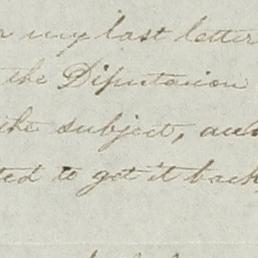 my last letter
the Diputacion
the subject, and
to get it back